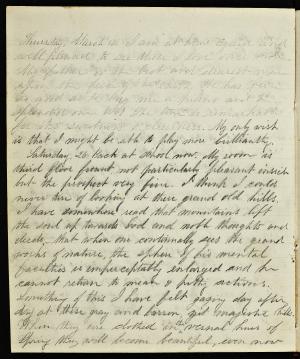 Thursday, March
well pleased to see those I love over
My father is the best and dearest man
upon the face of the earth. He has been
so good as to buy me a piano and I
My only wish
is that I might be able to play more brilliantly.
Saturday, 26. Back at school now. My room is
third floor front, not particularly pleasant inside
but the prospect very fine. I think I could
never tire of looking at these grand old hills.
I have somewhere read that mountains lift
the soul up towards God and noble thoughts and
deeds, that when one continually eyes the grand
works of nature, the sphere of his mental
faculties is imperceptibly enlarged and he
cannot return to mean & petty actions.
Something of this I have felt gazing day after
day at these gray and barren yet majestic hills.
When they are clothed with vernal hues of
Spring they will become beautiful, even now